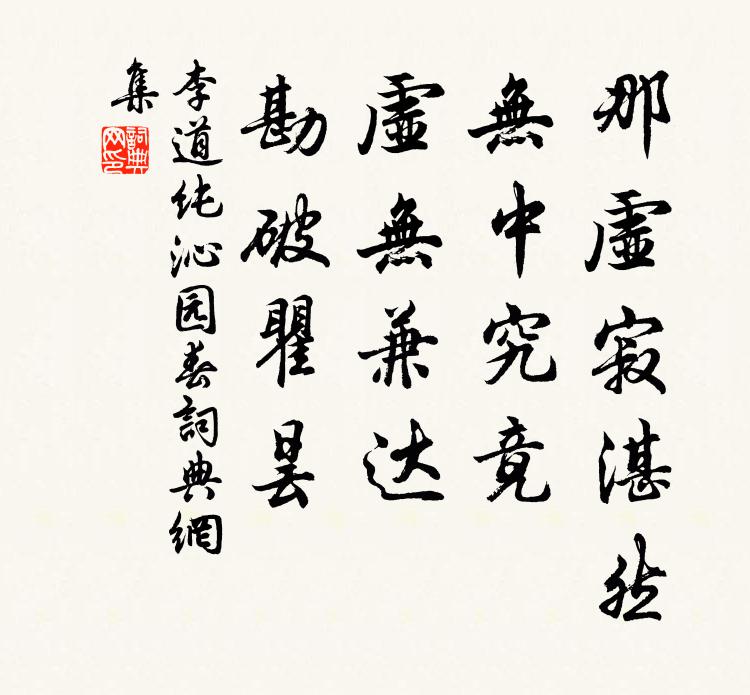 那虛寂湛然
無中究竟
虛無兼达
勘破瞿昙
李道纯沁园春詞典網
集
詞典网印